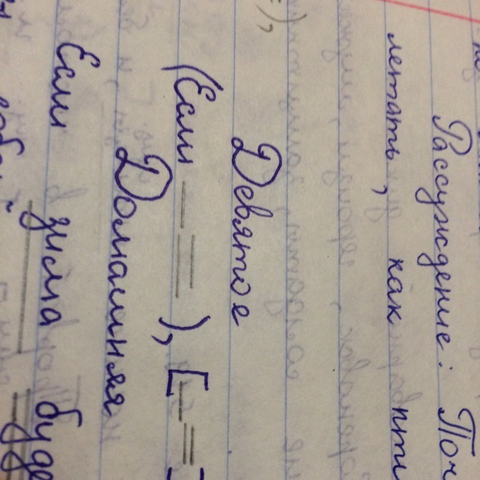 Рассуждение: Поч
летать, как пти
),
Девятое
(Если ), [
Домашняя
Если зима буде